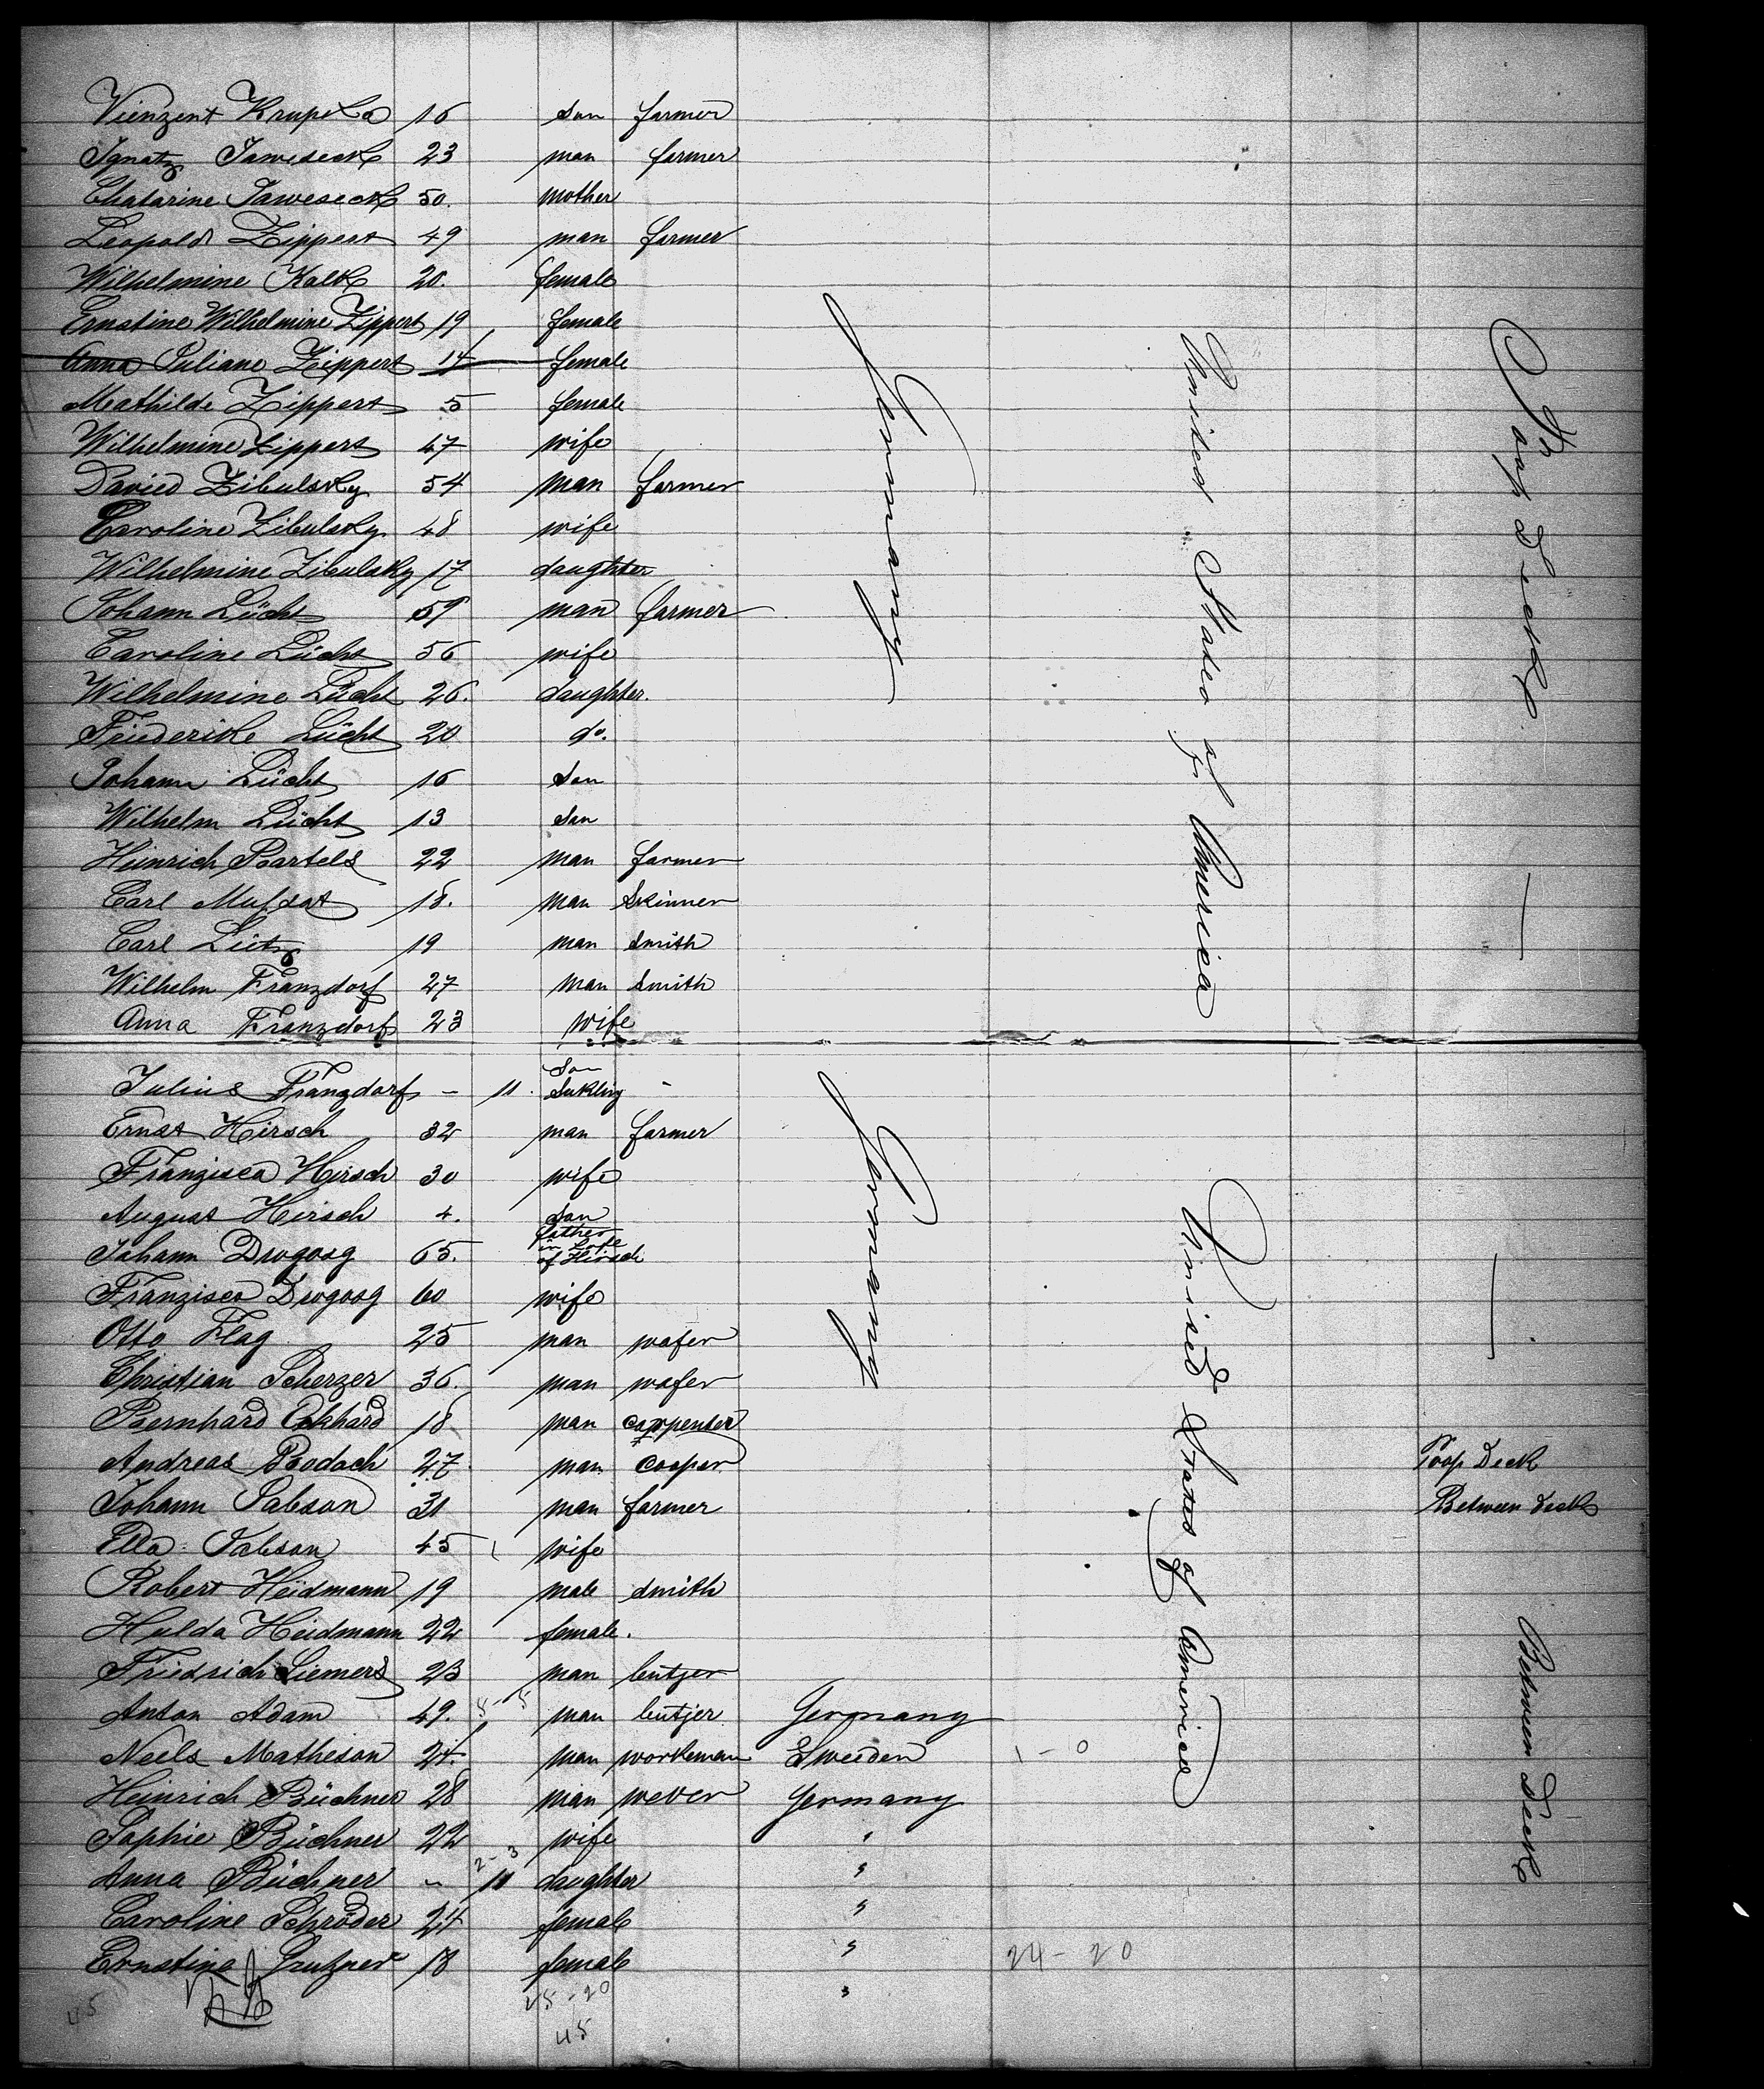 Vienzent Krupka 16 son farmer
Ignatz Jaweseck 23 man farmer
Chatarine Jaweseck 50. mother
Leopold Zippert 49 man farmer
Wilhelmine Kalk 20. female
Ernstine Wilhelmine Zippert 19 female
Anna Juliane Zippert 14 female
Mathilde Zippert 5 female
Wilhelmine Zippert 47 wife
David Zibulsky 54 man farmer
Caroline Zibulsky 48 wife
Wilhelmine Zibulsky 17 daughter
Johann Lücht 59 man farmer
Caroline Lücht 56 wife
Wilhelmine Lücht 26. daughter.
Friederike Lücht 20 do.
Johann Lücht 16 son
Wilhelm Lücht 13 son
Heinrich Bartels 22 man farmer
Carl 18. man skinner
Carl Lütz 19 man smith
Wilhelm Franzdorf 27 man smith
Anna Franzdorf 23 wife
Germany
United States of America
Poop Deck
Julius Franzdorf - 11. son sukling
Ernst Hirsch 32 man farmer
Franzisca Hirsch 30 wife
August Hirsch 4. son
Johann Drogosg 65. father in of Hirsch
Franzisca Drogosg 60 wife
Otto Flag 25 man wafer
Christian Scherzer 36. man wafer
Bernhard Ekhard 18 man carpenter
Andreas Bodach 27 man cooper Poop Deck
Johann Jabson 31 man farmer Between deck
Ella Jabson 45 wife
Robert Heidmann 19 male smith
Hulda Heidmann 22 female.
Friedrich Siemers 23 man
Anton Adam 49. man Germany
Neels Matheson 24. man workeman Sweeden 1-0
Heinrich Büchner 28 man wever Germany
Sophie Büchner 22 wife "
2-3
Anna Büchner - 11 daughter "
Caroline Schröder 24 female "
Ernstine 18 female " 24-20
Germany
United States of America
Between Deck
45 25-20 "
45